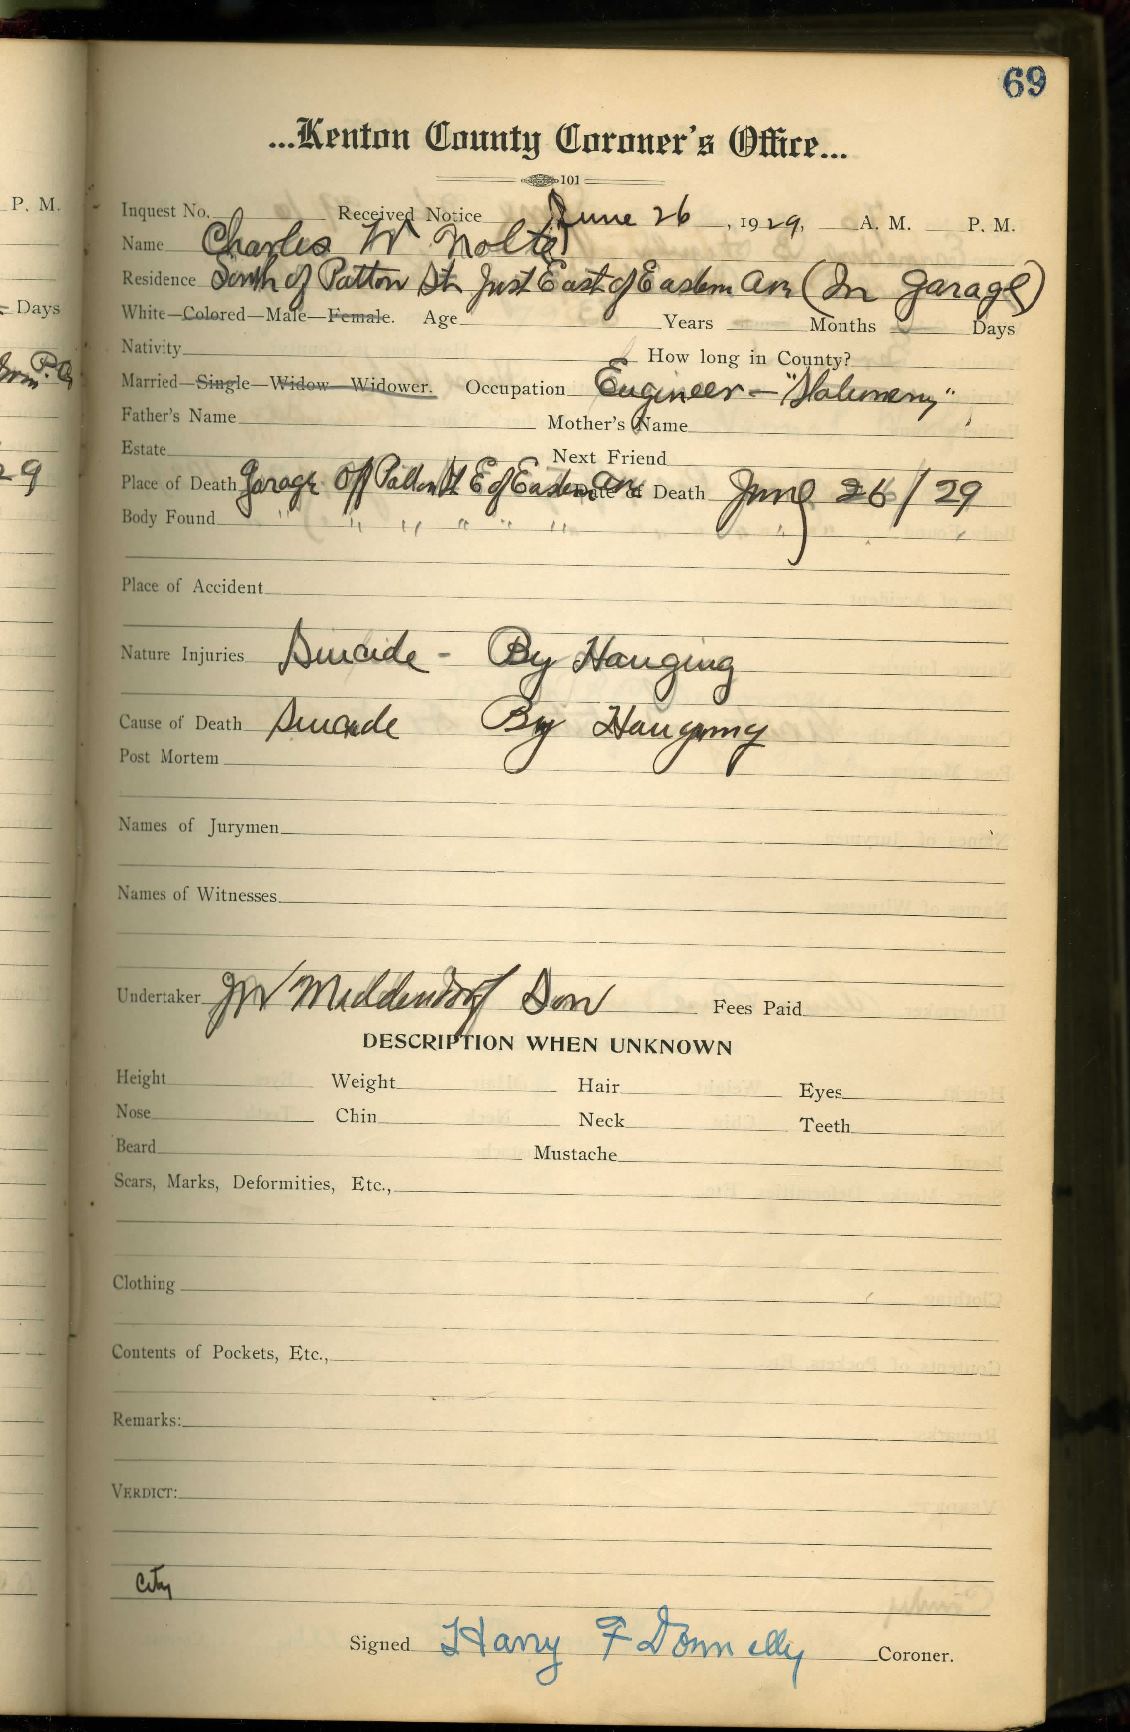 69
...Kenton County Coroner's Office...
101
P. M.
Inquest No. Received Notice June 26, 1929, A. M. P. M.
Name Charles W Nolte
Residence South of Patton St. Just East of Eastern Ave (In Garage)
Days
White—Colored—Male—Female. Age Years Months Days
Nativity How long in County?
Married—Single—Widow—Widower. Occupation Engineer - "Stationery"
Father's Name Mother's Name
Estate Next Friend
29
Place of Death Garage Off Patton St E of Eastern Ave Date of Death June 26/29
Body Found " " " " " "
Place of Accident
Nature Injuries Suicide - By Hanging
Cause of Death Suicide By Hanging
Post Mortem
Names of Jurymen
Names of Witnesses
Undertaker JW Middendorf Son Fees Paid
DESCRIPTION WHEN UNKNOWN
Height Weight Hair Eyes
Nose Chin Neck Teeth
Beard Mustache
Scars, Marks, Deformities, Etc.,
Clothing
Contents of Pockets, Etc.,
Remarks:
VERDICT:
City
Signed Harry F Donnelly Coroner.